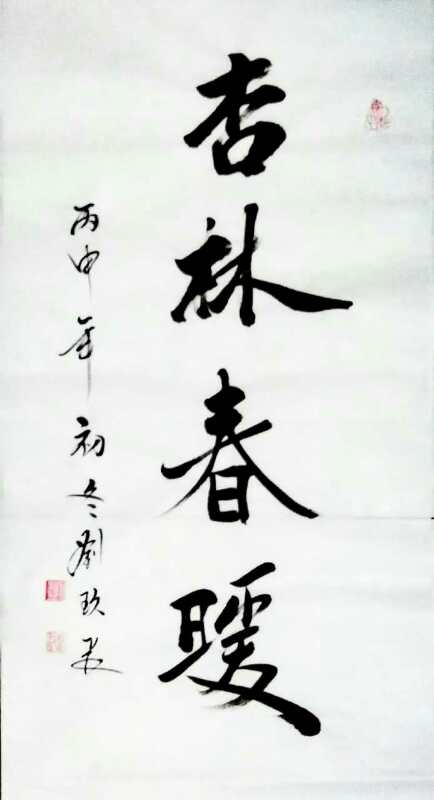 杏林春暖
丙申年初冬劉玖